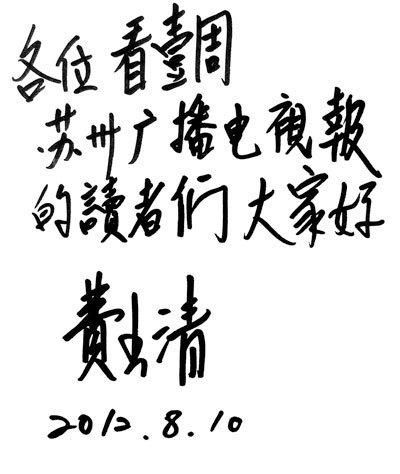 各位看壹周
苏州广播电視報
的讀者们大家好
費玉清
2012.8.10